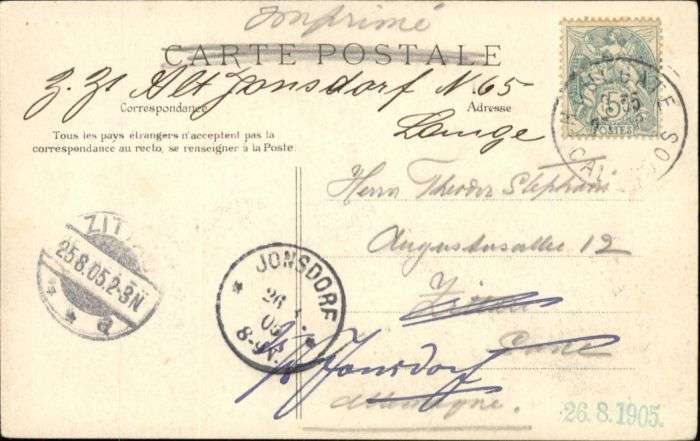 Imprimé
CARTE POSTALE
z. Zt Alt Jonsdorf N 65
Correspondance
Adresse
Lange
Tous les pays étrangers n'acceptent pas la
correspondance au recto, se renseigner à la Poste.
5
POSTES
Herrn Theodor Stephani
Augustusallee 12
Zittau
ZIT
25.8.05.2-3N
* a
JONSDORF
26
05
8-9V.
Jonsdorf
Allemagne.
26.8.1905.